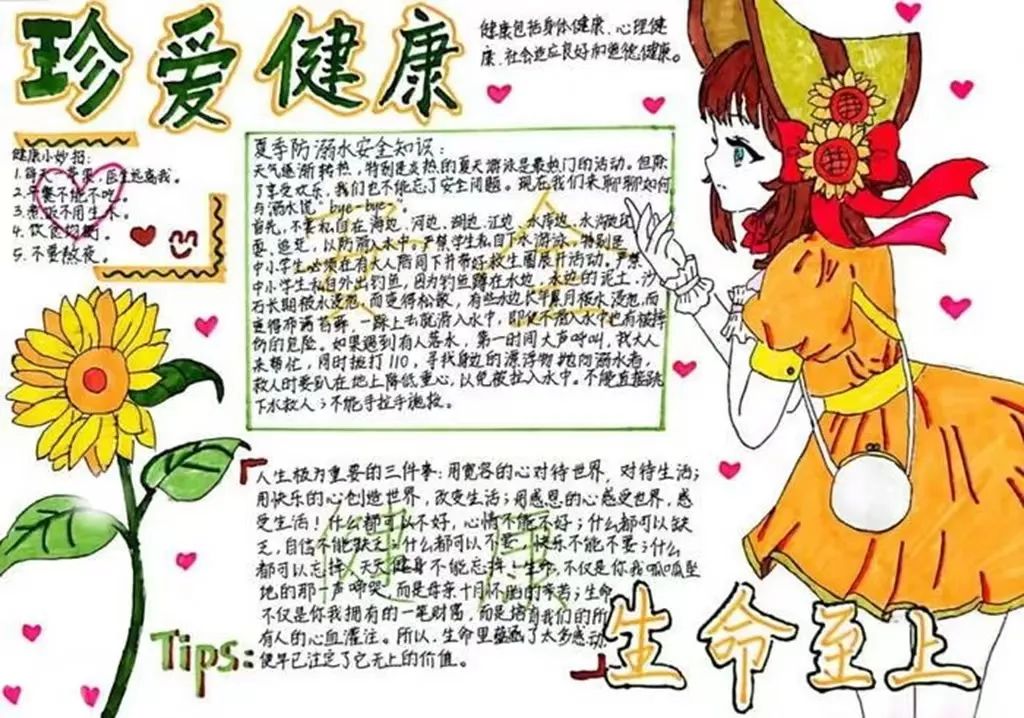 珍爱健康
健康包括身体健康、心理健
康、社会适应良好和道德健康。
健康小妙招:
1.每天一苹果,医生远离我。
2.早餐不能不吃。
3.煮饭不用生水。
4.饮食均衡。
5.不要熬夜。
夏季防溺水安全知识:
天气逐渐转热,特别是炎热的夏天游泳是最热门的活动。但除
了享受欢乐,我们也不能忘了安全问题。现在我们来聊聊如何
与溺水说"bye-bye~"。
首先,不要私自在海边、河边、湖边、江边、水库边、水沟边玩
耍、追逐,以防滑入水中。严禁学生私自下水游泳,特别是
中小学生必须在有大人陪同下并带好救生圈展开活动。严禁
中小学生私自外出钓鱼,因为钓鱼蹲在水边,水边的泥土、沙
石长期被水浸泡,而变得松散,有些水边长年累月被水浸泡,而
变得布满苔藓,一踩上去就滑入水中,即使不滑入水中也有被摔
伤的危险。如果遇到有人落水,第一时间大声呼叫,找大人
来帮忙,同时拨打110,寻找身边的漂浮物抛向溺水者,
救人时要趴在地上降低重心,以免被拉入水中。不能直接跳
下水救人;不能手拉手施救。
安全
人生极为重要的三件事:用宽容的心对待世界,对待生活;
用快乐的心创造世界,改变生活;用感恩的心感受世界,感
受生活!什么都可以不好,心情不能不好;什么都可以缺
乏,自信不能缺乏;什么都可以不要,快乐不能不要;什么
都可以忘掉,天天健身不能忘掉!生命,不仅是你我呱呱坠
地的那一声啼哭,而是母亲十月怀胎的辛苦;生命
不仅是你我拥有的一笔财富,而是培育我们的所
有人的心血灌注。所以,生命里蕴涵了太多感动
便早已注定了它无上的价值。
健康
Tips:
生命至上